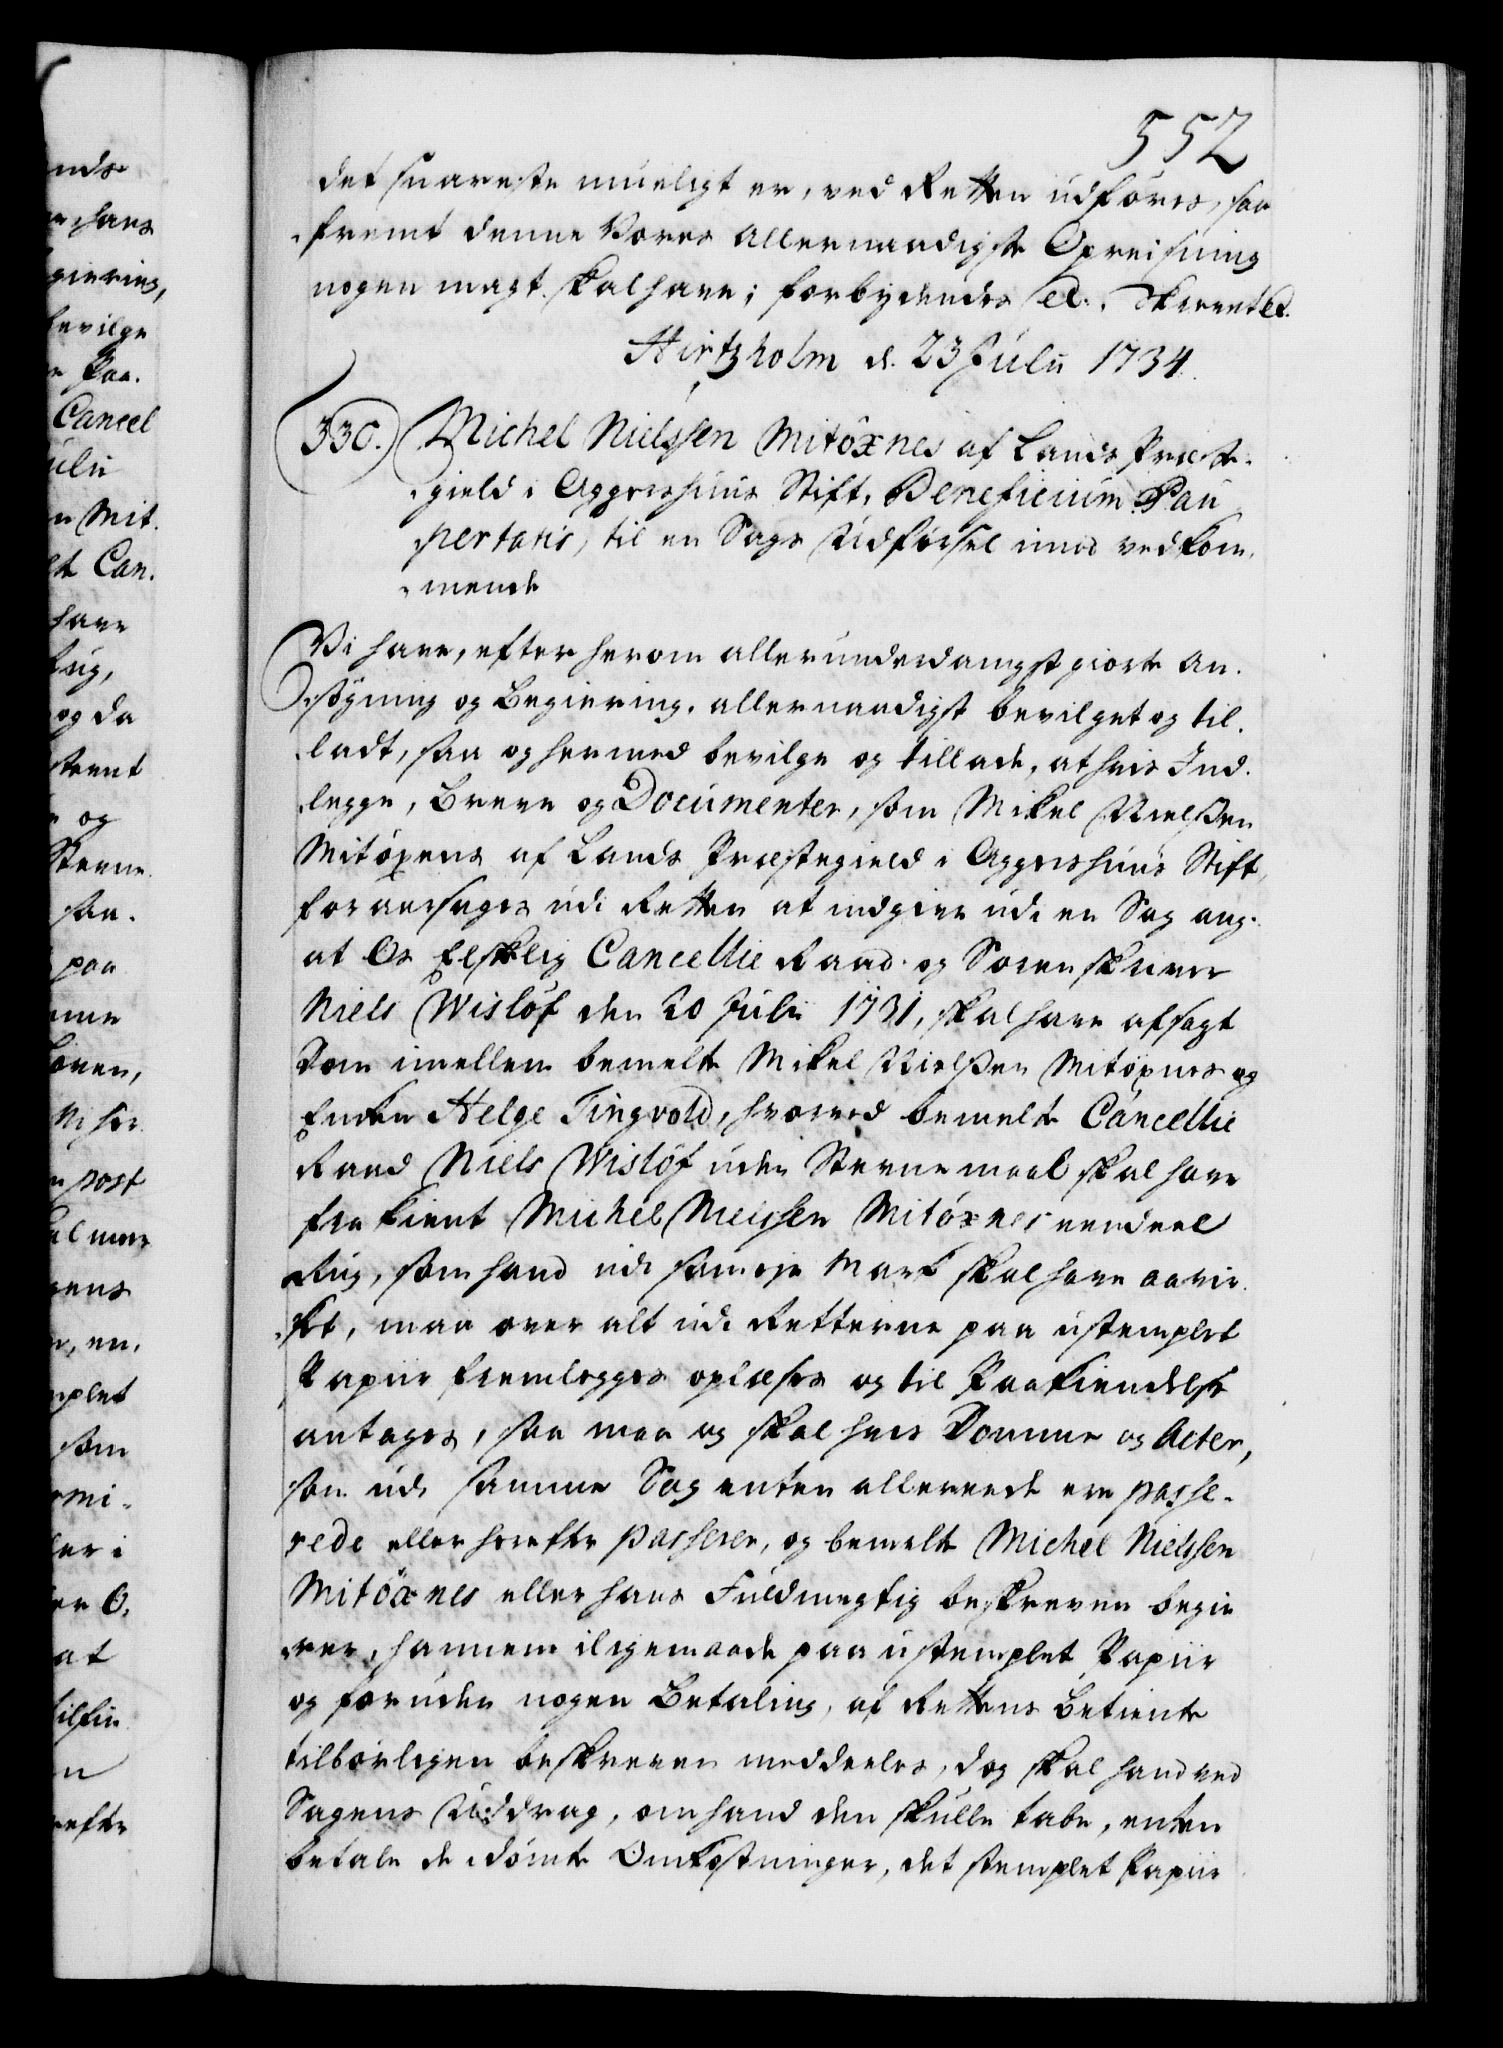 552
det snareste mueligt er, ved Retten udføres, saa
fremt denne Vores allernaadigste Opreisning
nogen magt skal have; forbydendes &c. Skrevet &c.
Hirtzholm d. 23 Julii 1734.
330. Michel Nielssen Mitöxnes af Lands Præste-
gield i Aggershuus Stift, Beneficium Pau
pertatis, til en Sags Udførsel imod vedkom-
mende
Vi have, efter herom allerunderdanigst giorte An-
søgning og Begiering, allernaadigst bevilget og til-
ladt, saa og hermed bevilge og tillade, at hvis Ind-
legge, Breve og Documenter, som Mikel Nielsen
Mitöxens af Lands Præstegield i Aggershuus Stift,
foraarsages udi Retten at indgive udi en Sag ang.
at Os Elskelig Cancellie Raad og Sorenskriver
Niels Wislöf den 20 Julii 1731, skal have afsagt
Dom imellem bemelte Mikel Nielsen Mitöxnes og
Enken Helge Tingvold, hvorved bemelte Cancellie
Raad Niels Wislöf uden Stevnemaal skal have
frakient Michel Nielssen Mitöxnes eendeel
Rug, som hand udi sin eje Mark skal have aavir-
ket, maa over alt udi Retterne paa ustemplet
Papiir fremlegges oplæses og til Paakiendelse
antages, saa maa og skal hvis Domme og Acter,
som udi samme Sag enten allereede ere passe-
rede eller herefter passerer, og bemelte Michel Nielssen
Mitöxnes eller hans Fuldmegtig beskreven begie
rer, hannem iligemaade paa ustemplet Papiir
og foruden nogen Betaling, af Rettens Betiente
tilbørligen beskreven meddeeles, dog skal hand ved
Sagens Uddrag, om hand den skulle tabe, enten
betale de idømte Omkostninger, det stemplet Papiir